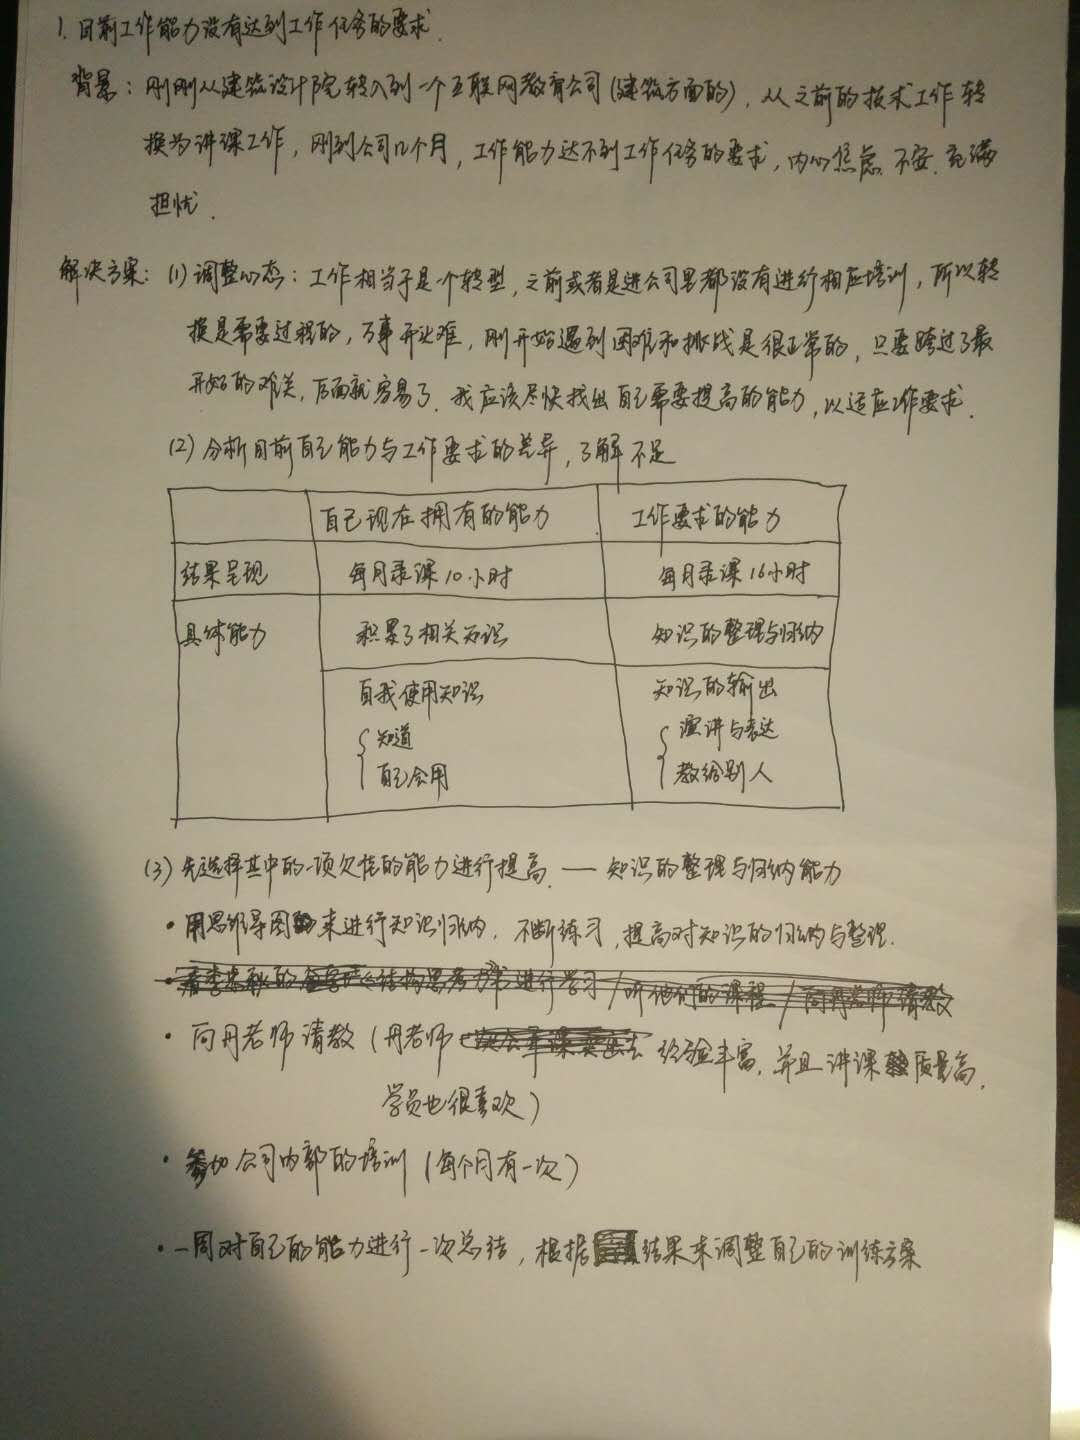 1. 目前工作能力没有达到工作任务的要求.
背景：刚刚从建筑设计院转入到一个互联网教育公司(建筑方面的)，从之前的技术工作转
换为讲课工作，刚到公司几个月，工作能力达不到工作任务的要求，内心焦虑、不安、充满
担忧.
解决方案：(1)调整心态：工作相当于是个转型，之前或者是进公司里都没有进行相应培训，所以转
换是需要过程的，万事开头难，刚开始遇到困难和挑战是很正常的，只要跨过了最
开始的难关，后面就容易了. 我应该尽快找出自己需要提高的能力，以适应工作要求.
(2)分析目前自己能力与工作要求的差异，了解不足
自己现在拥有的能力 工作要求的能力
结果呈现 每月录课10小时 每月录课16小时
具体能力 积累了相关知识 知识的整理与归纳
自我使用知识 知识的输出
知道 演讲与表达
自己会用 教给别人
(3)先选择其中的一项欠佳的能力进行提高 —— 知识的整理与归纳能力
·用思维导图来进行知识归纳. 不断练习，提高对知识的归纳与整理.
·看李忠秋的《结构思考力》书进行学习/听他们的课程/向丹老师请教
·向丹老师请教(丹老师 经验丰富，并且讲课质量高.
学员也很喜欢)
·参加公司内部的培训(每个月有一次)
·一周对自己的能力进行一次总结，根据结果来调整自己的训练方案